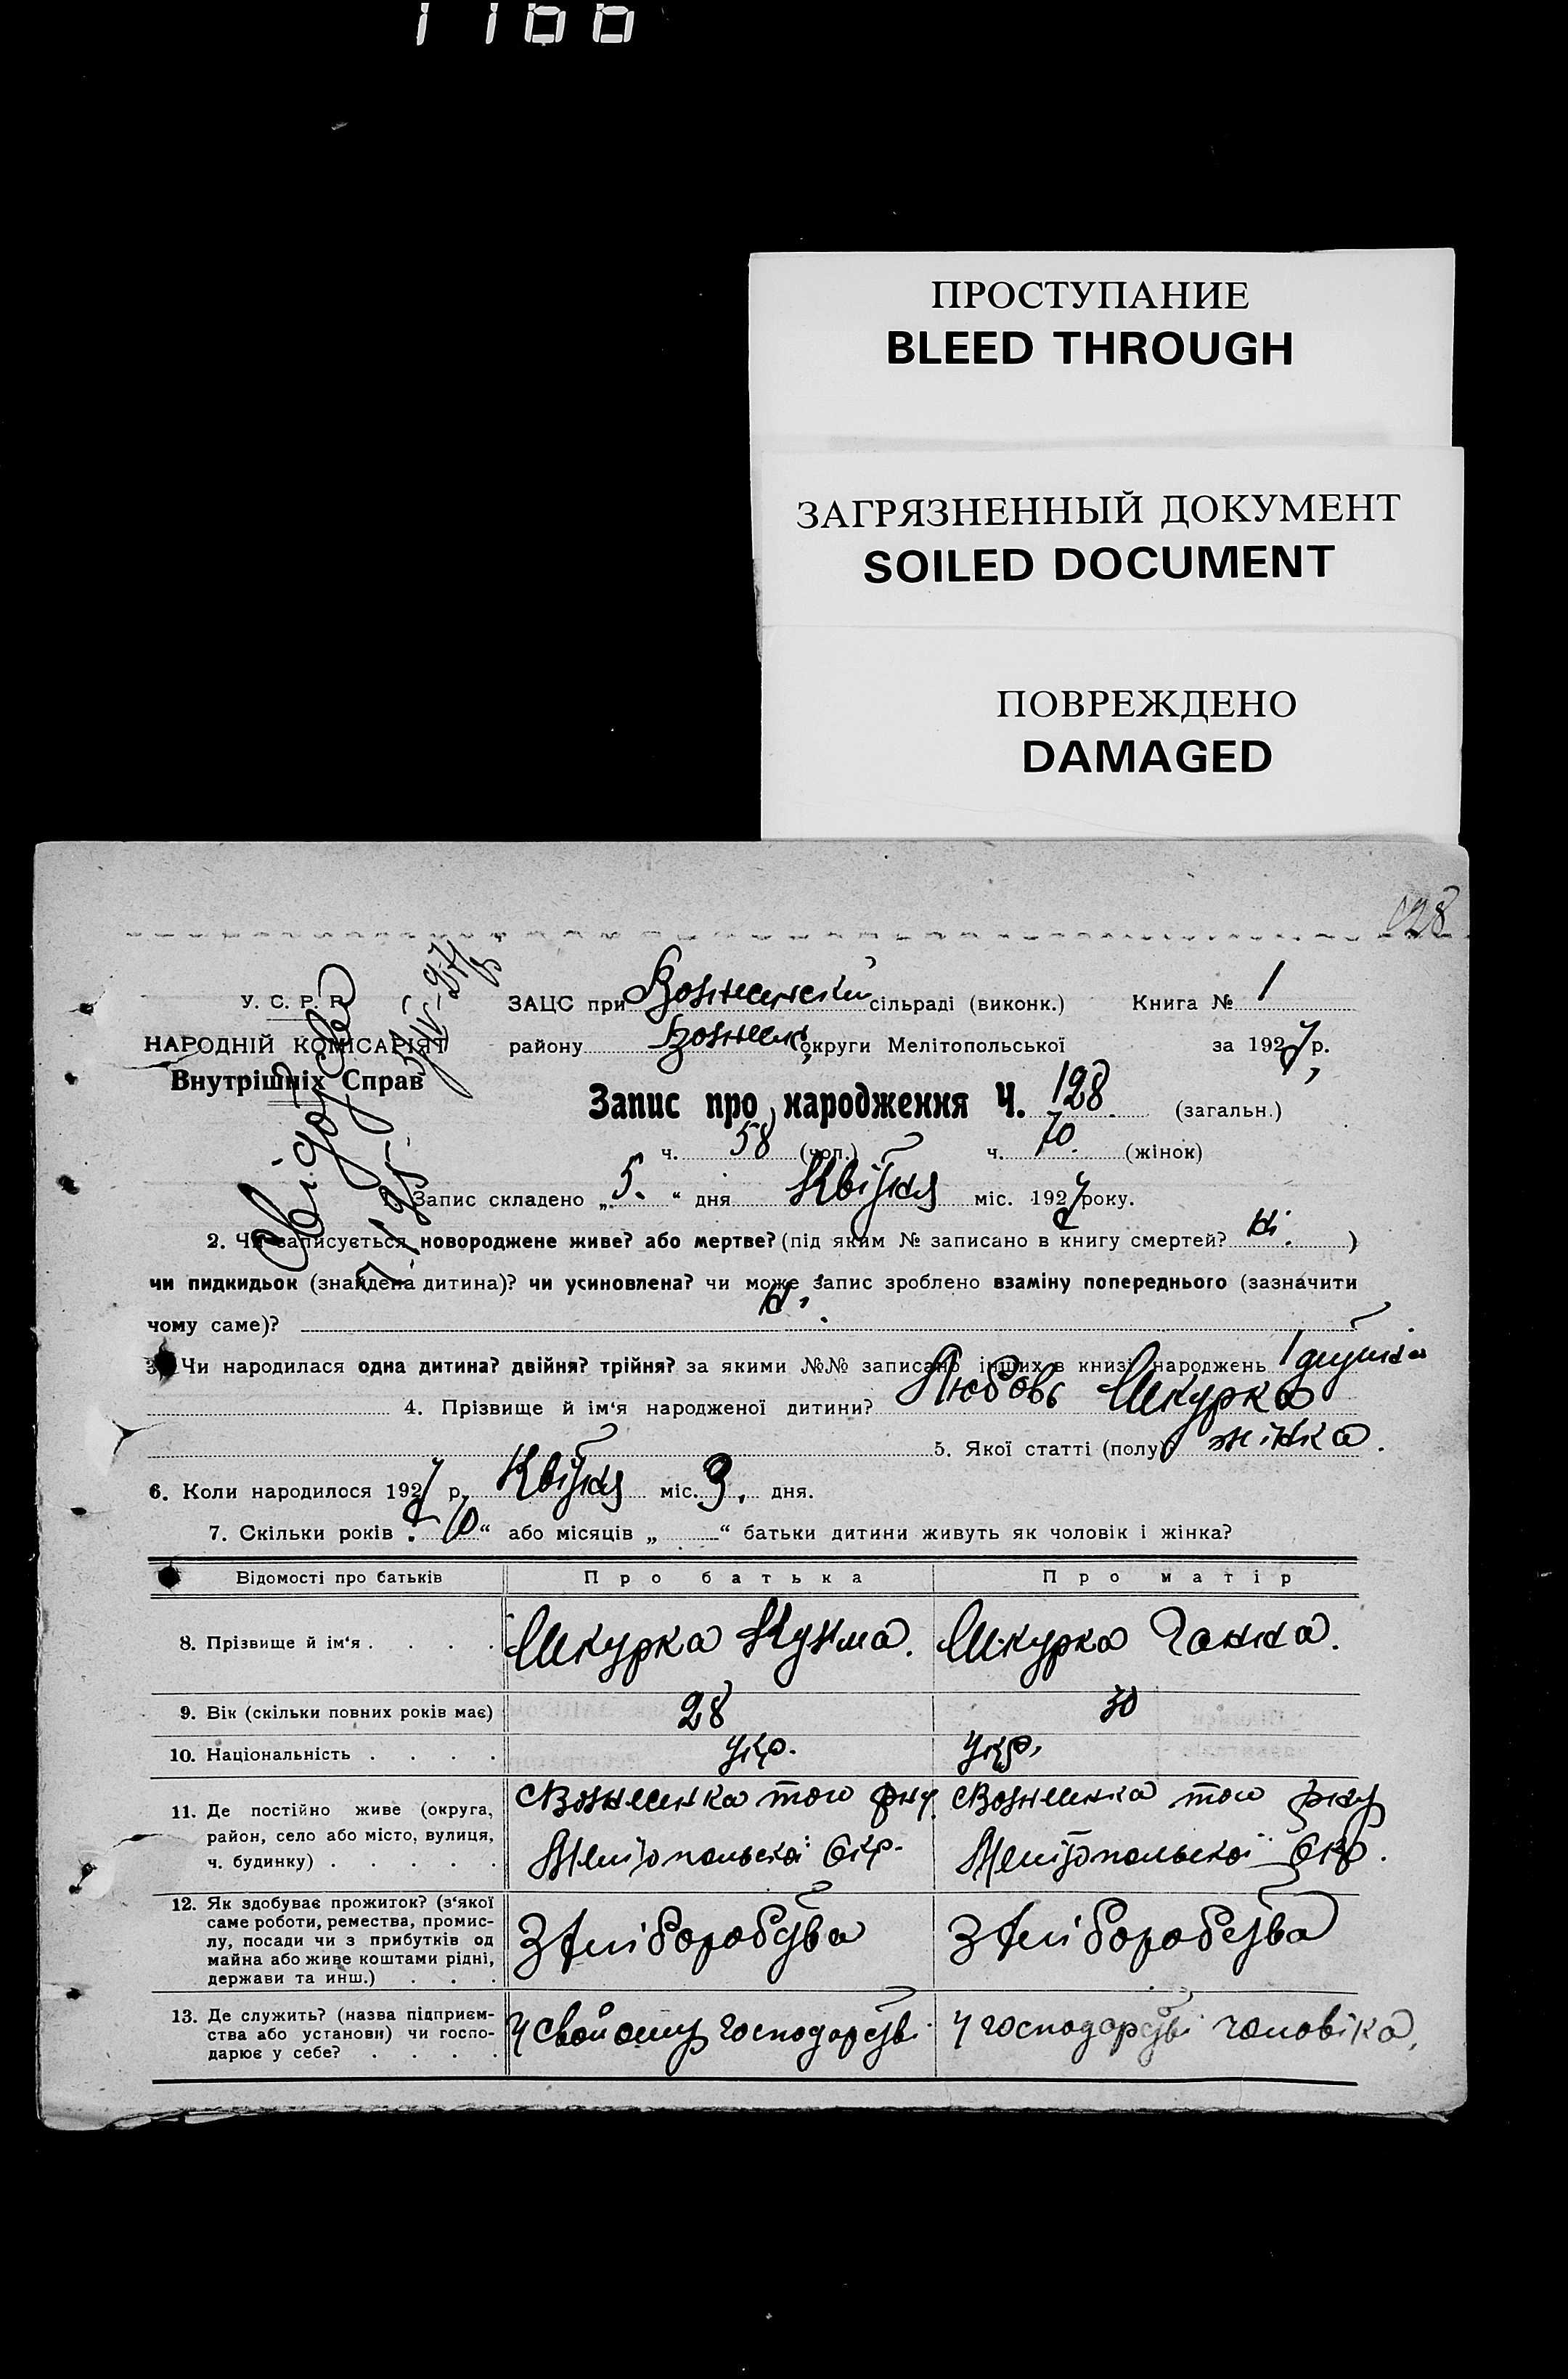 1166
ПРОСТУПАНИЕ
BLEED THROUGH
ЗАГРЯЗНЕННЫЙ ДОКУМЕНТ
SOILED DOCUMENT
ПОВРЕЖДЕНО
DAMAGED
128
У. С. Р. Р.
НАРОДНІЙ КОМІСАРІЯТ
Внутрішніх Справ
ЗАЦС при сільраді (виконк.) Книга № 1
району Вознесен. округи Мелітопольської за 1927 р.
Запис про народження Ч. 128 (загальн.)
ч. 58 (чол.) ч. 70 (жінок)
Запис складено „5.“ дня Квітня міс. 1927 року.
2. Чи записується новороджене живе? або мертве? (під яким № записано в книгу смертей? Ні.)
чи пидкидьок (знайдена дитина)? чи усиновлена? чи може запис зроблено взаміну попереднього (зазначити
чому саме)? Ні.
3. Чи народилася одна дитина? двійня? трійня? за якими №№ записано інших в книзі народжень 1
4. Прізвище й ім'я народженої дитини? Любовь Шкурка
5. Якої статті (полу) жінка.
6. Коли народилося 1927 р. Квітня міс. 3. дня.
7. Скільки років „10“ або місяців „ “ батьки дитини живуть як чоловік і жінка?
Відомості про батьків Про батька Про матір
8. Прізвище й ім'я . . . . Шкурка Кузма. Шкурка Ганна.
9. Вік (скільки повних років має) 28 30
10. Національність . . . . укр. укр.
11. Де постійно живе (округа, район, село або місто, вулиця, ч. будинку) . . . . .
с Вознесенка того рну с Вознесенка того рну
Мелітопольскоі Окр. Мелітопольскоі Окр.
12. Як здобуває прожиток? (з'якої
саме роботи, ремества, промис-
лу, посади чи з прибутків од
майна або живе коштами рідні,
держави та инш.) . . .
З хліборобства З хліборобства
13. Де служить? (назва підприєм-
ства або установи) чи госпо-
дарює у себе? . . . .
У свойому господарстві У господарстві чоловіка.